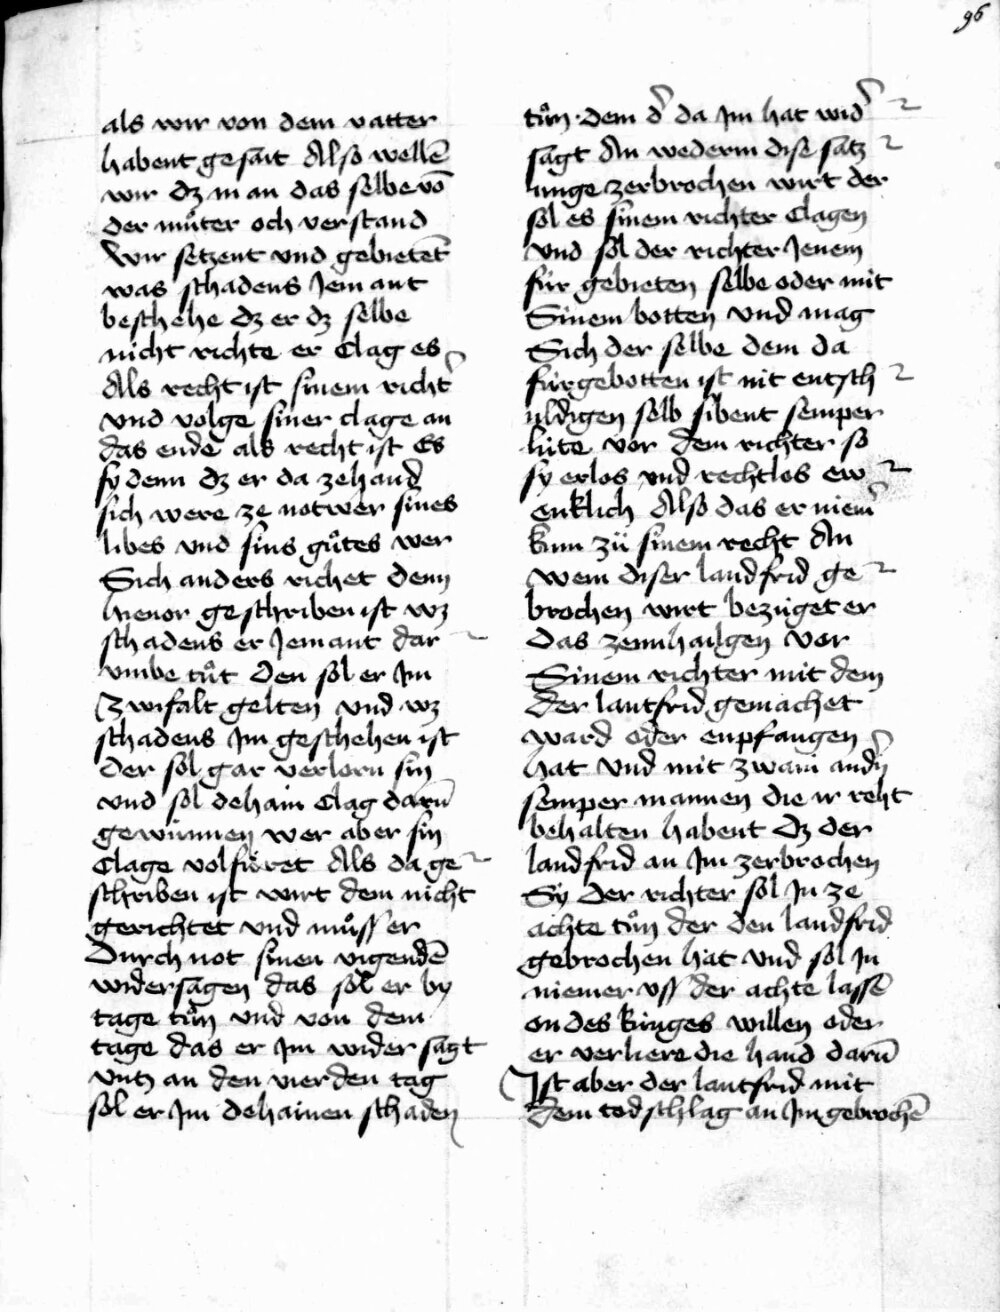 96
als wir von dem vatter
habent gesait Also wellē
wir dz man das selbe vō
der muͦter och verstand
Wir setzent vnd gebietēt
was schadens Jemant
beschehe dz er dz selbe
nicht richte er Clag es
Als recht ist sinem richt᷑
vnd volge siner clage an
das ende als recht ist Es
sy denn dz er da zehand
sich were ze notwer sines
libes vnd sins guͦtes wer
Sich anders richet denn
hienor geschriben ist wz
schadens er Jemant dar
vmbe tuͦt Den sol er Im
Zwifalt gelten vnd wz
schadens Im geschehen ist
Der sol gar verlorn sin
vnd sol dehain Clag darū
gewünnen wer aber sin
Clage volfuͤret Als da ge
schriben ist wirt dem nicht
gerichtet vnd muͦss er
Durch not sinen vigendē
widersagen das sol er by
tage tuͦn vnd von dem
tage das er Im wider sagt
vntz an den vierden tag
sol er Im dehainen schaden
tuͦn dem d᷑ da Im hat wid᷑
sagt An wederm dise satz
unge zerbrochen wirt der
sol es sinem richter Clagen
vnd sol der richter Jenem
für gebieten selbe oder mit
Sinem botten vnd mag
Sich der selbe dem da
fürgebotten ist nit entsch
uldigen selb sibent semper
lüte vor dem richter so
sy erlos vnd rechtlos ew
enklich Also das er niem᷑
kum zü sinem recht An
wem diser landfrid ge
brochen wirt bezüget er
das zennhailgen vor
Sinem richter mit dem
der lantfrid gemachet
ward oder enpfangen
hat vnd mit zwain andn᷑
semper mannen die ir reht
behalten habent Dz der
landfrid an Im zerbrochen
Sy Der richter sol In ze
achte tuͦn der den landfrid
gebrochen hat vnd sol In
niemer vss der achte lassē
on des kinges willen oder
er verliere die hand darū
Ist aber der lantfrid mit
dem todschlag an Im gebrochē